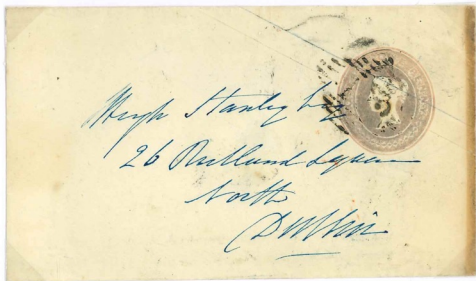 Hugh Stanley Esq
26 Rutland Square
North
Dublin